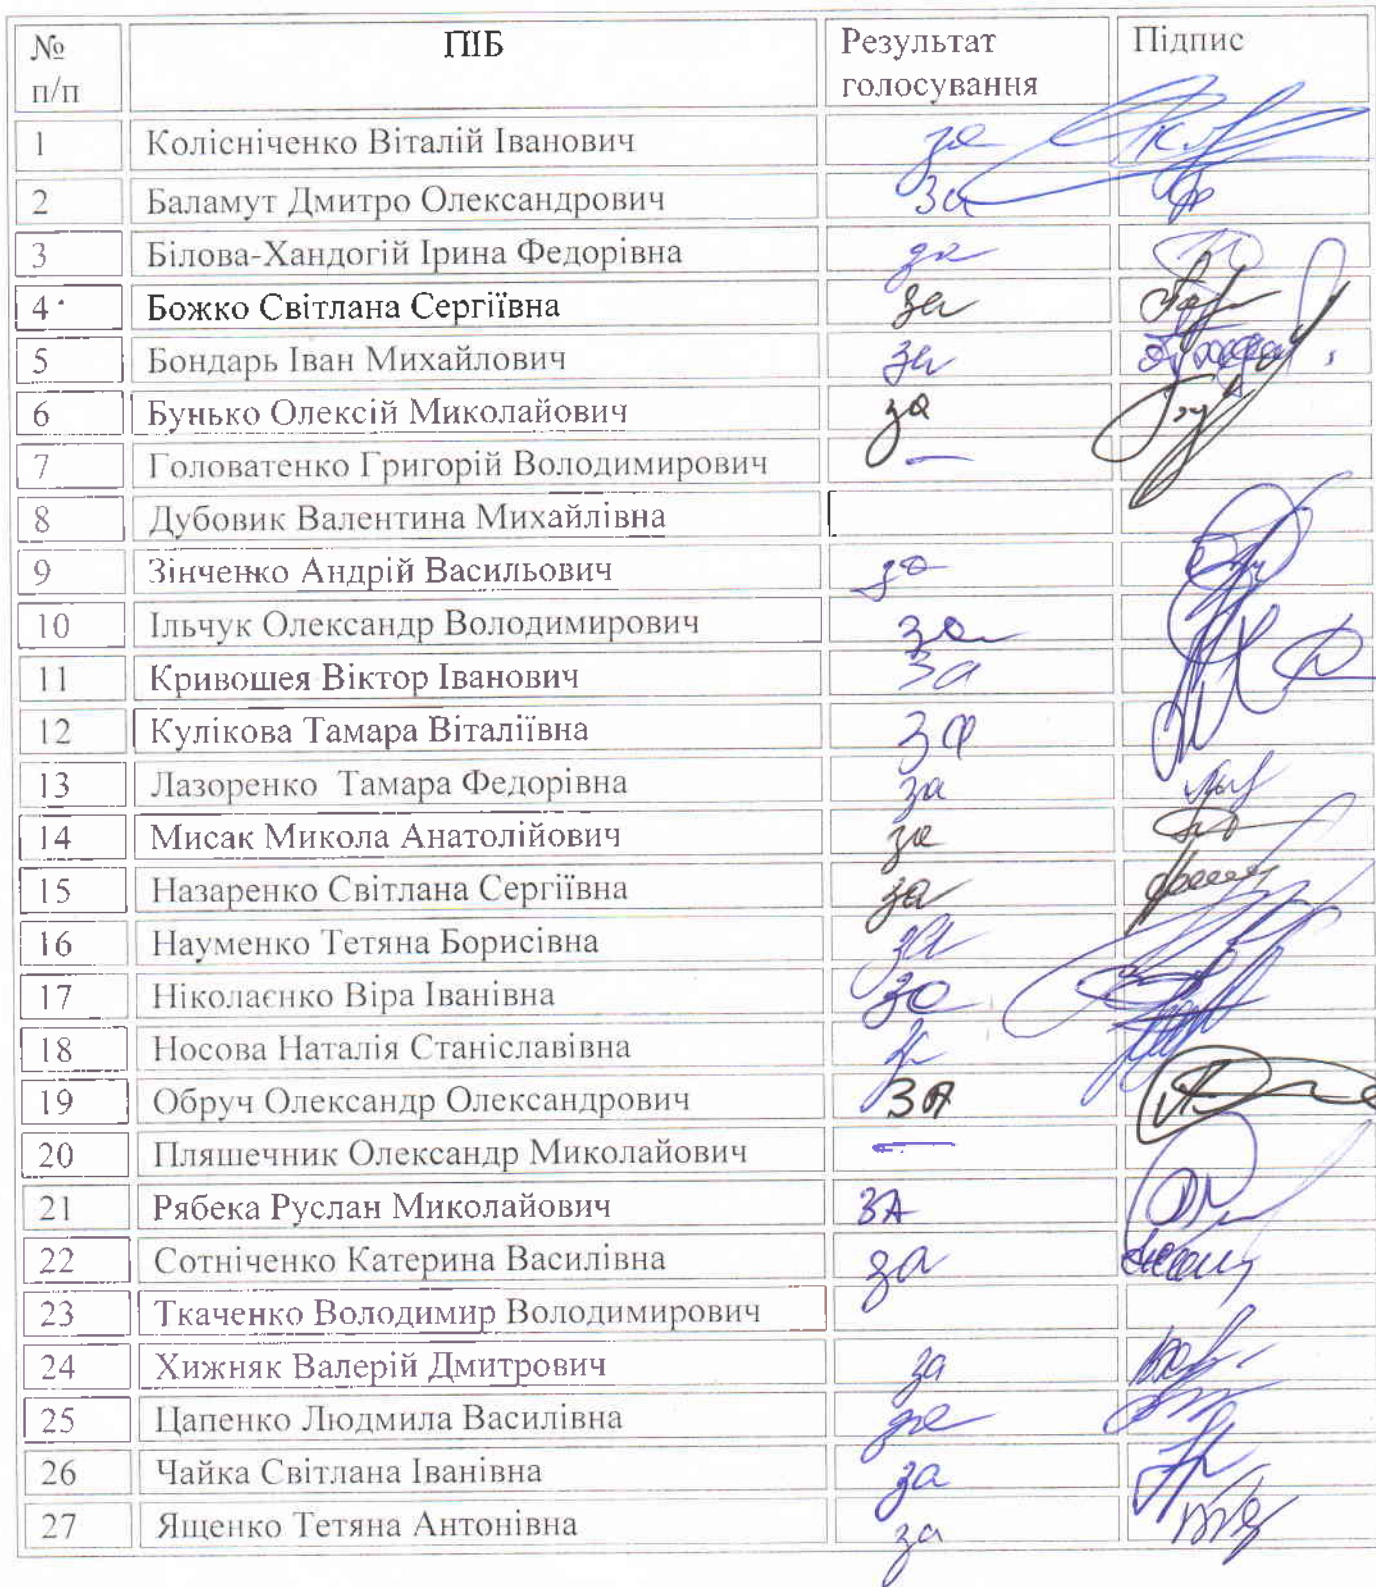 № п/п ПІБ Результат голосування Підпис
1 Колісніченко Віталій Іванович за
2 Баламут Дмитро Олександрович за
3 Білова-Хандогій Ірина Федорівна за
4 Божко Світлана Сергіївна за
5 Бондарь Іван Михайлович за
6 Бунько Олексій Миколайович за
7 Головатенко Григорій Володимирович —
8 Дубовик Валентина Михайлівна
9 Зінченко Андрій Васильович за
10 Ільчук Олександр Володимирович за
11 Кривошея Віктор Іванович за
12 Кулікова Тамара Віталіївна за
13 Лазоренко Тамара Федорівна за
14 Мисак Микола Анатолійович за
15 Назаренко Світлана Сергіївна за
16 Науменко Тетяна Борисівна за
17 Ніколаєнко Віра Іванівна за
18 Носова Наталія Станіславівна за
19 Обруч Олександр Олександрович ЗА
20 Пляшечник Олександр Миколайович —
21 Рябека Руслан Миколайович ЗА
22 Сотніченко Катерина Василівна за
23 Ткаченко Володимир Володимирович
24 Хижняк Валерій Дмитрович за
25 Цапенко Людмила Василівна за
26 Чайка Світлана Іванівна за
27 Ященко Тетяна Антонівна за